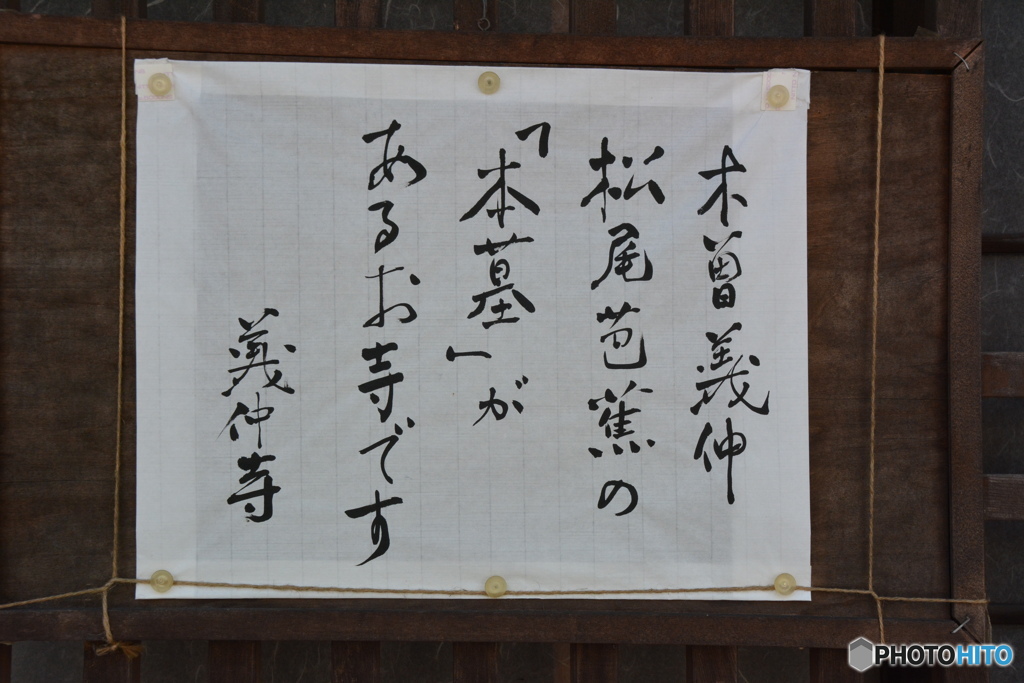 木曽義仲
松尾芭蕉の
「本墓」が
あるお寺です
義仲寺
PHOTOHITO